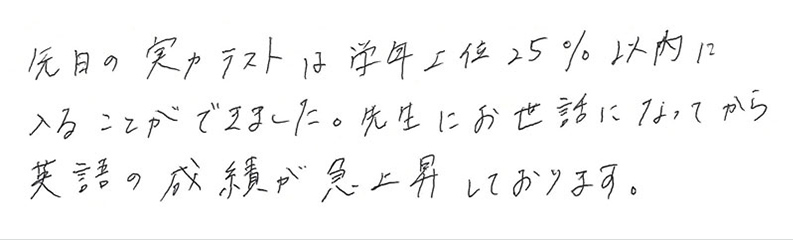 先日の実力テストは学年上位25%以内に
入ることができました。先生にお世話になってから
英語の成績が急上昇しております。